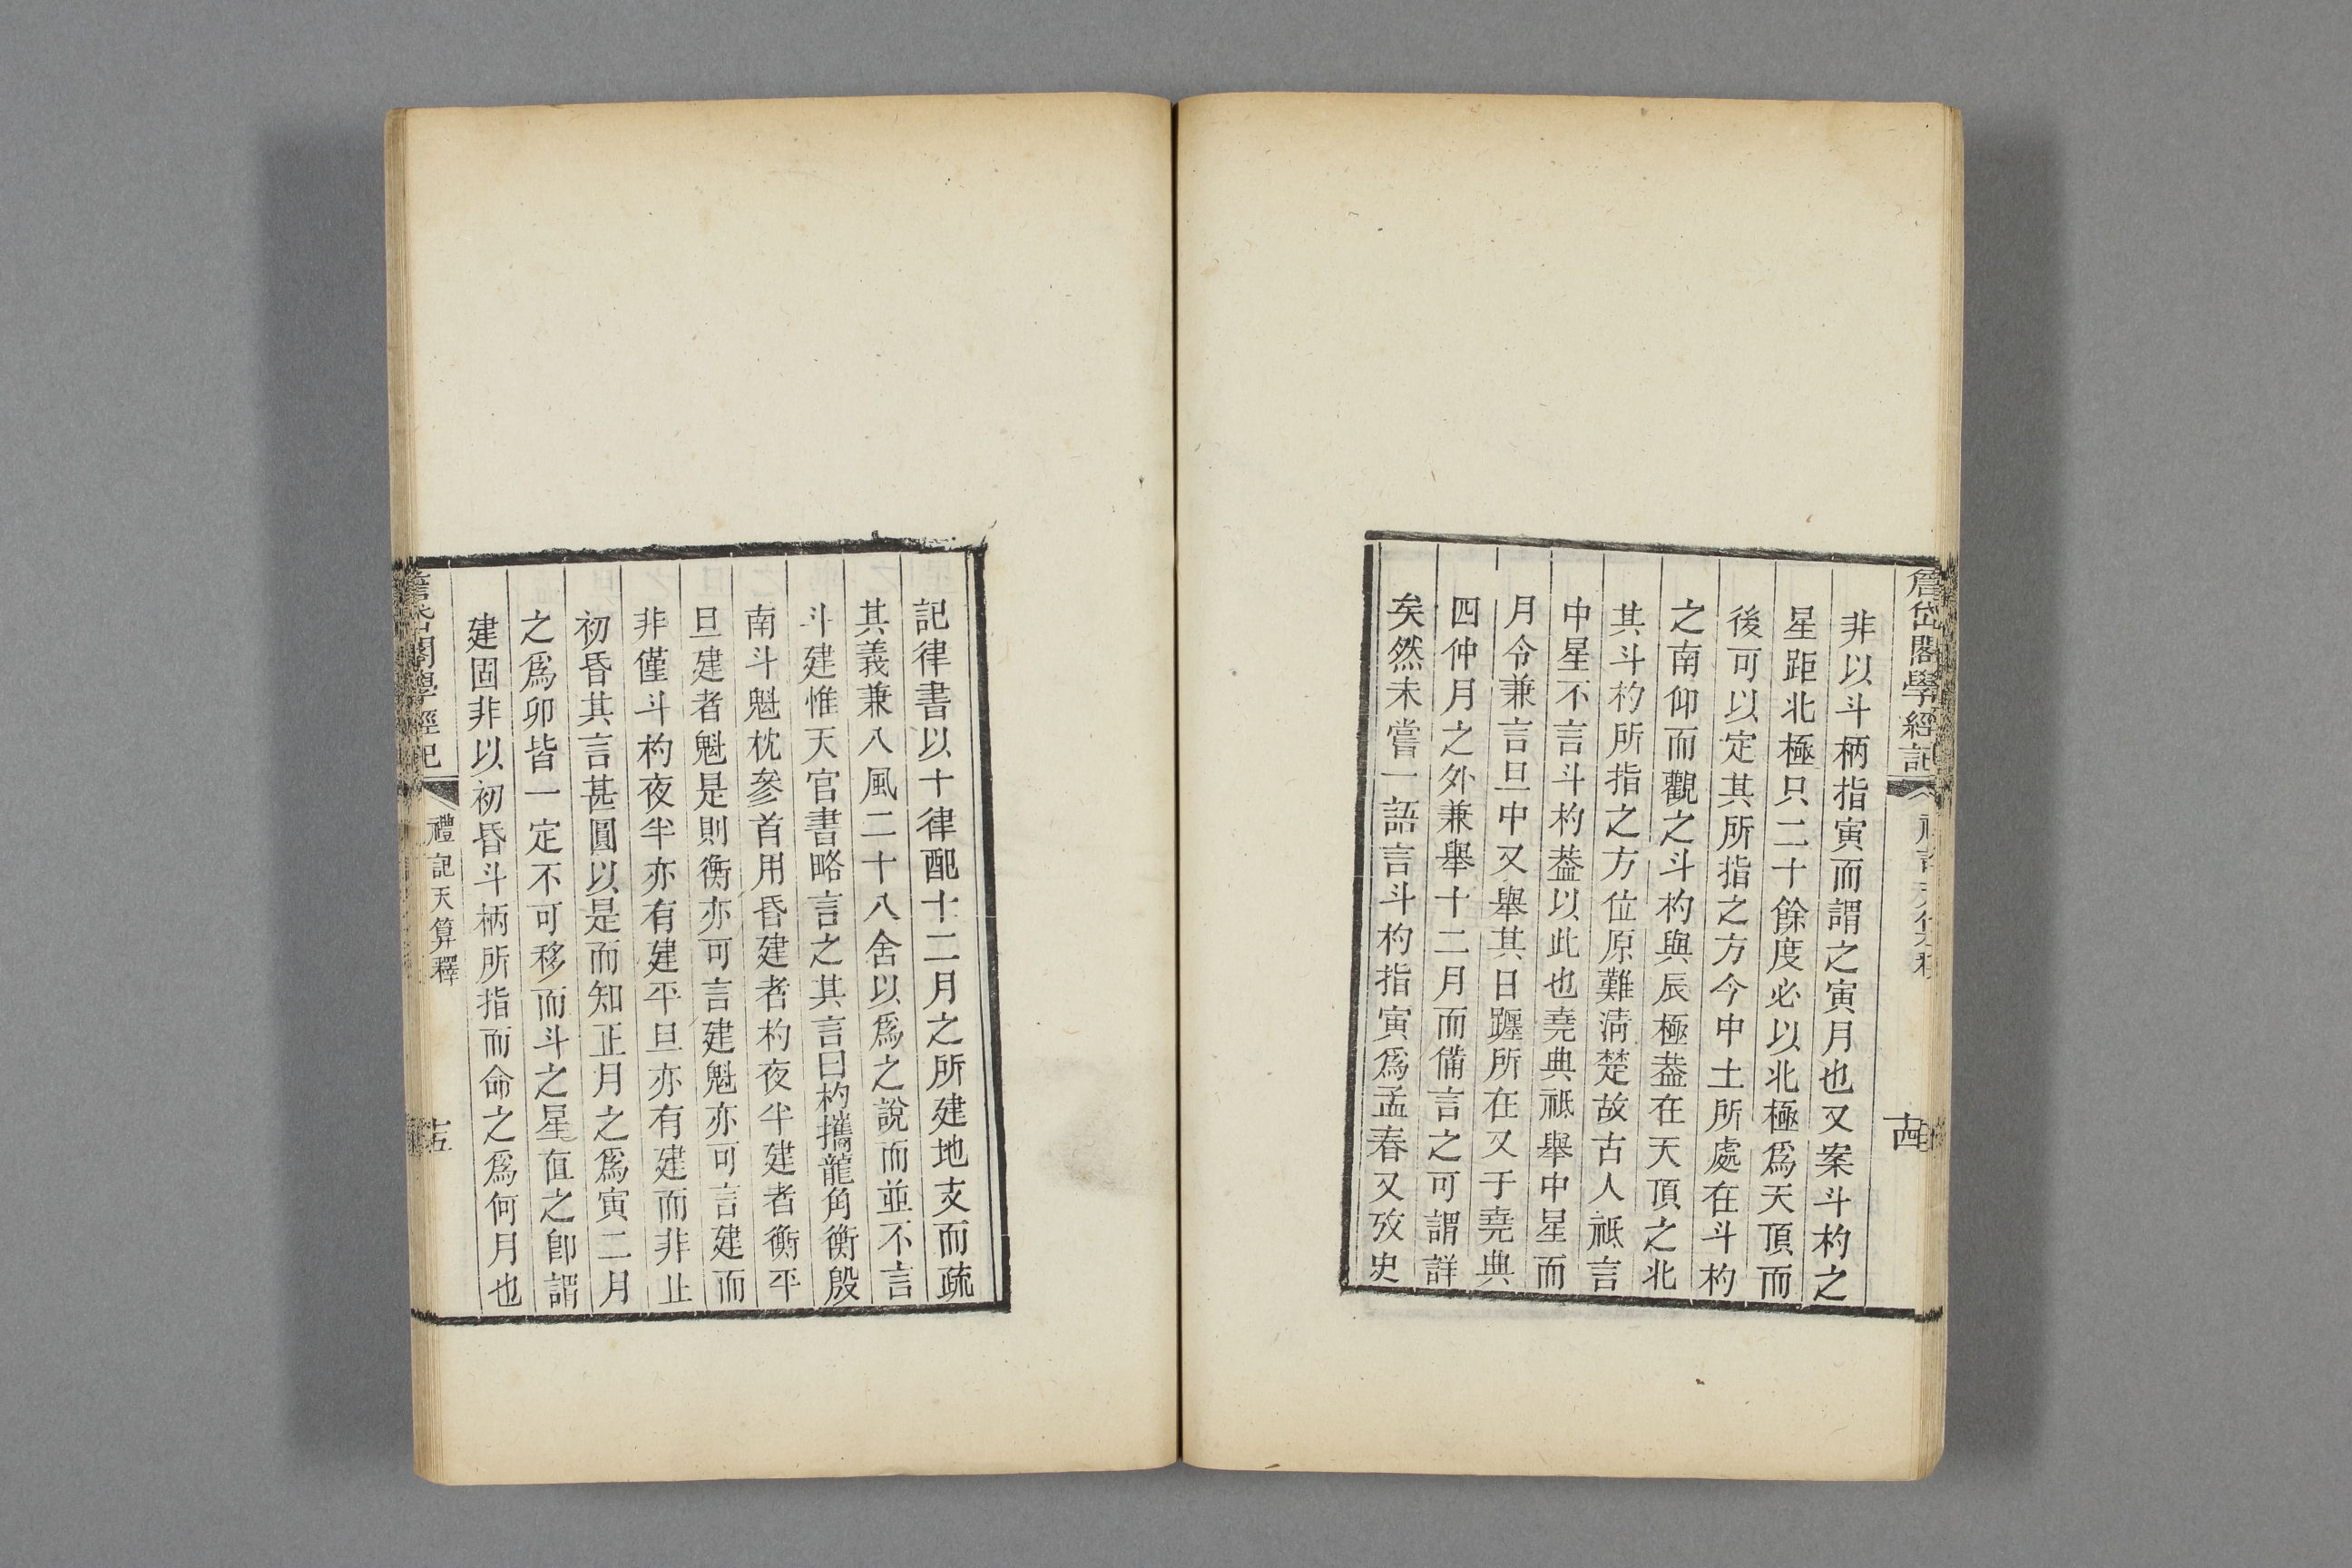 詹岱閣學經記
十四
非以斗柄指寅而謂之寅月也又案斗杓之
星距北極只二十餘度必以北極爲天頂而
後可以定其所指之方今中土所處在斗杓
之南仰而觀之斗杓與辰極葢在天頂之北
其斗杓所指之方位原難淸楚故古人祗言
中星不言斗杓葢以此也堯典祗舉中星而
月令兼言旦中又舉其日躔所在又于堯典
四仲月之外兼舉十二月而備言之可謂詳
矣然未嘗一語言斗杓指寅爲孟春又攷史
記律書以十律配十二月之所建地支而疏
其義兼八風二十八舍以爲之說而並不言
斗建惟天官書略言之其言曰杓攜龍角衡殷
南斗魁枕參首用昏建者杓夜半建者衡平
旦建者魁是則衡亦可言建魁亦可言建而
非僅斗杓夜半亦有建平旦亦有建而非止
初昏其言甚圓以是而知正月之爲寅二月
之爲卯皆一定不可移而斗之星直之卽謂
建固非以初昏斗柄所指而命之爲何月也
詹岱閣學經記
禮記天算釋
十五